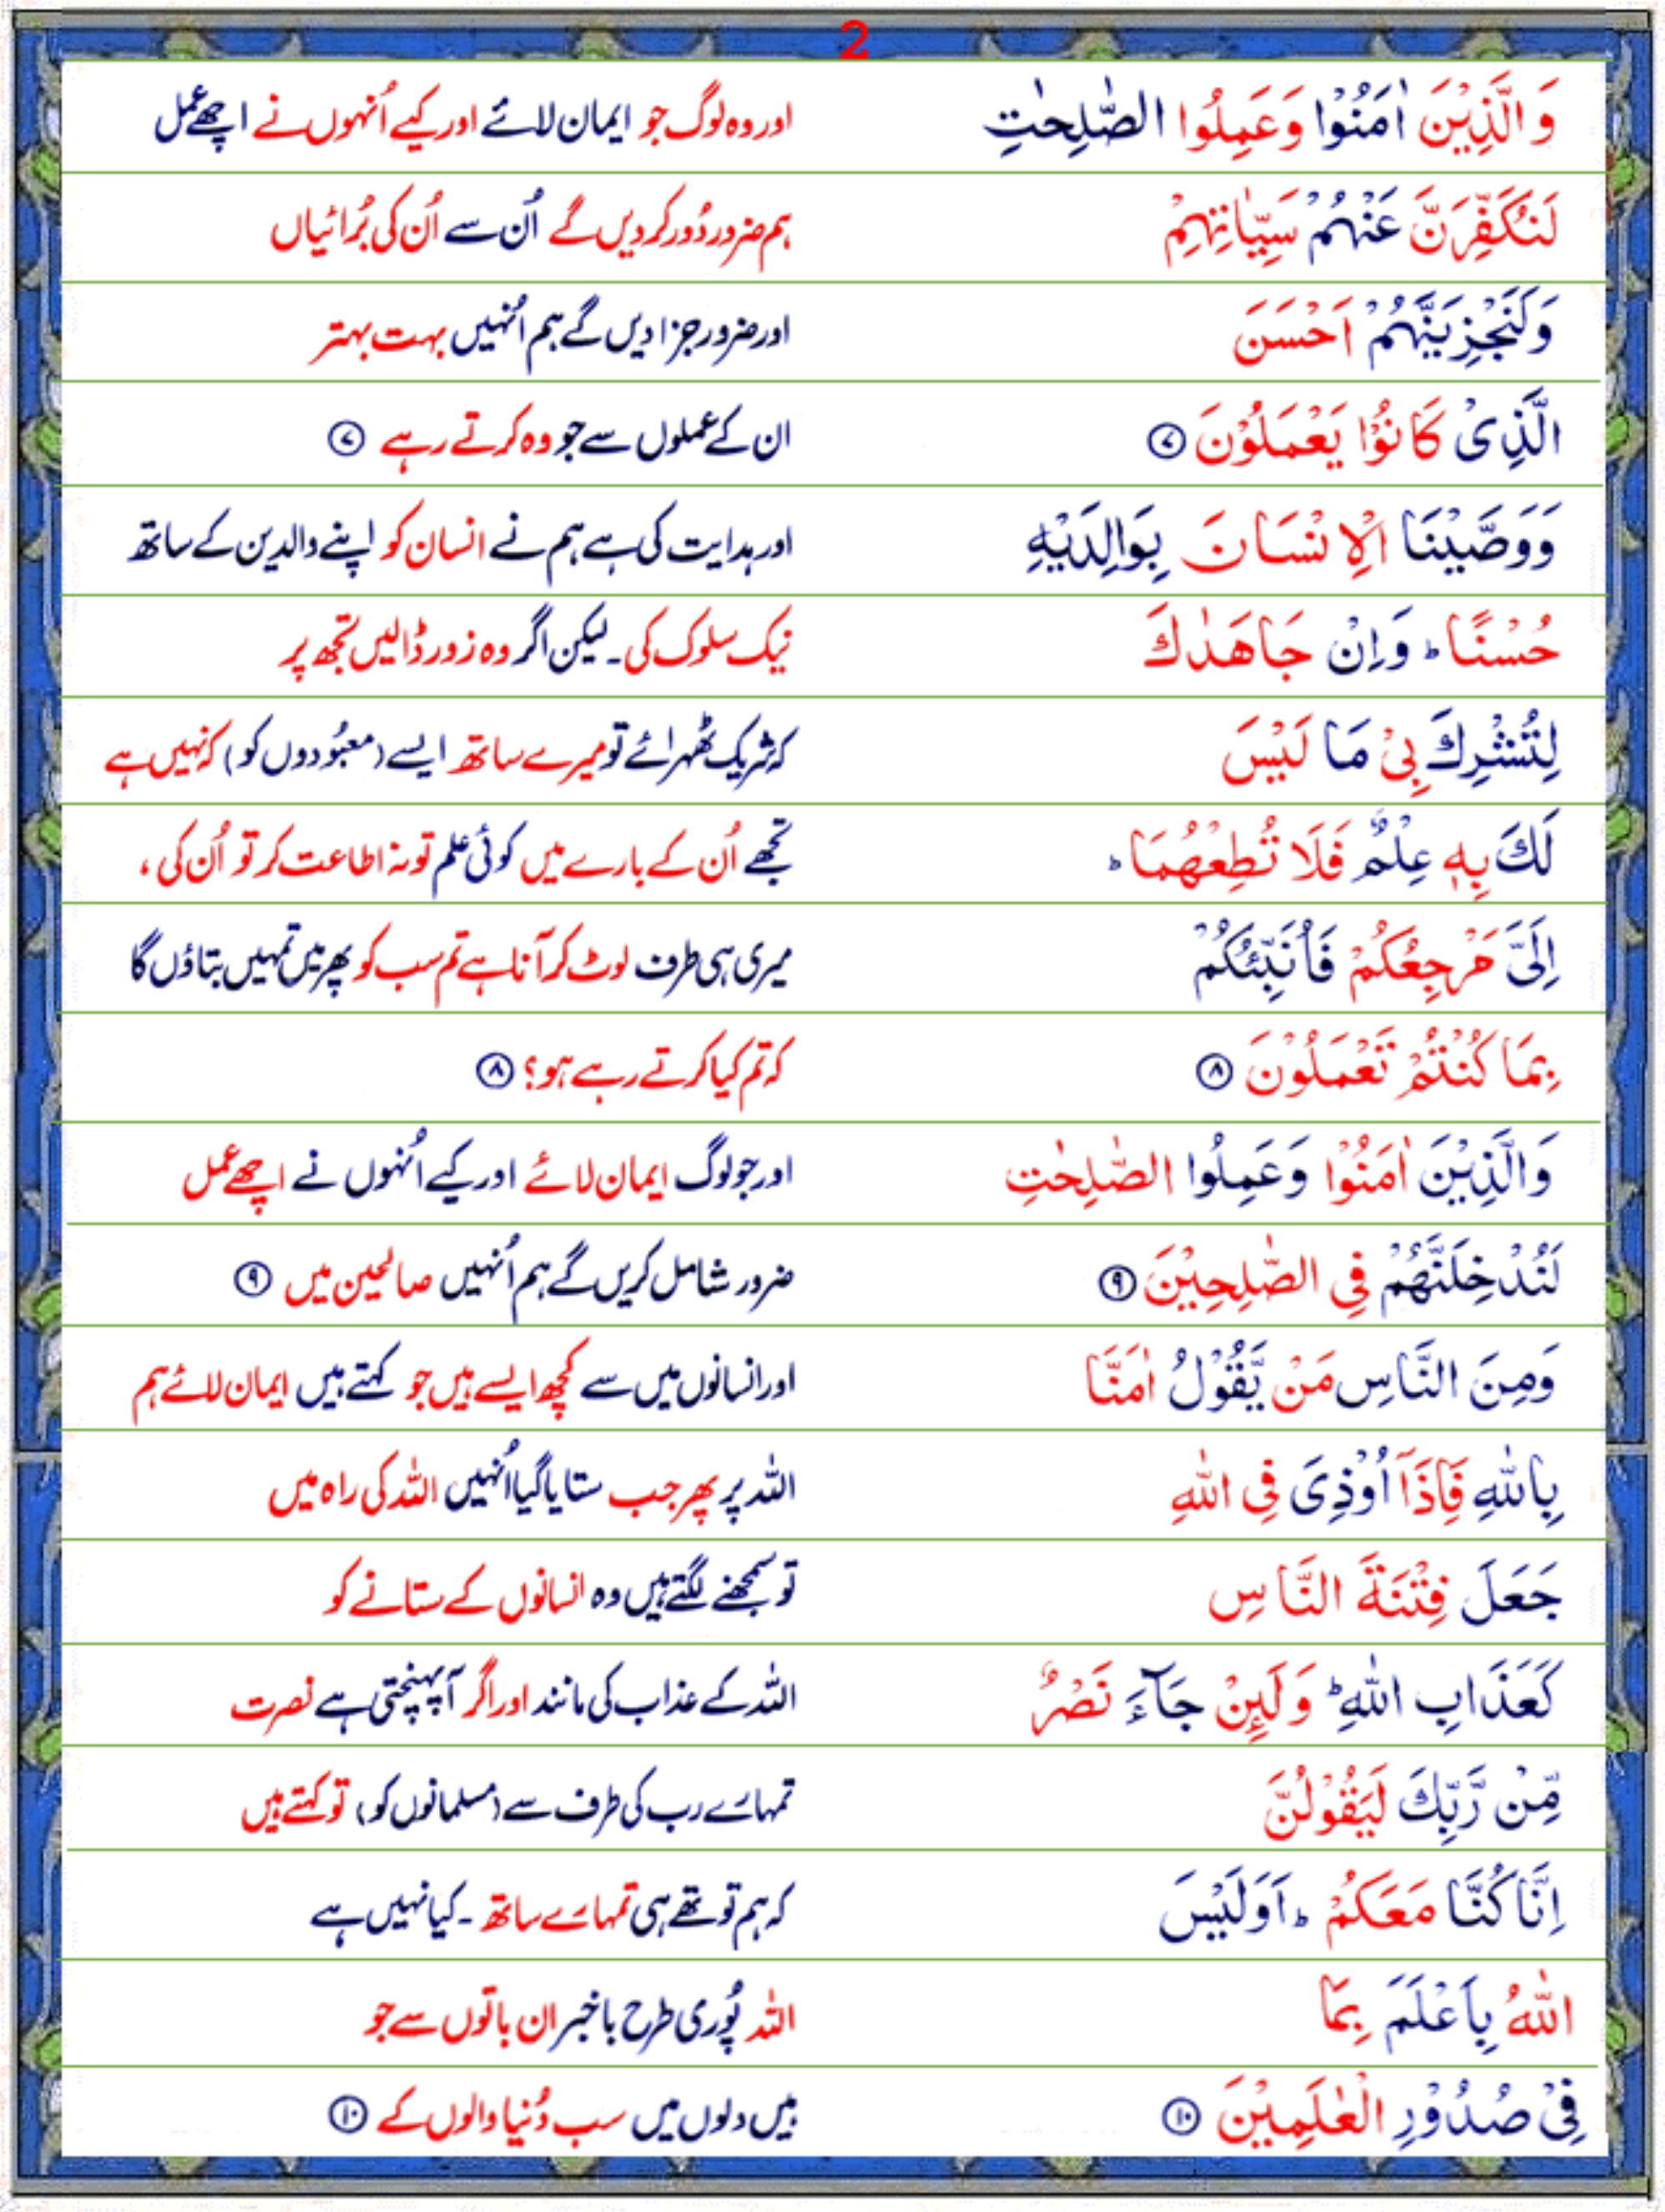 2
وَ الَّذِیْنَ اٰمَنُوْا وَعَمِلُوا الصّٰلِحٰتِ اور وہ لوگ جو ایمان لائے اور کیے اُنہوں نے اچھے عمل
لَنُكَفِّرَنَّ عَنْهُمْ سَیِّاٰتِهِمْ ہم ضرور دُور کردیں گے اُن سے اُن کی بُرائیاں
وَلَنَجْزِیَنَّهُمْ اَحْسَنَ اور ضرور جزا دیں گے ہم اُنہیں بہت بہتر
الَّذِیْ كَانُوْا یَعْمَلُوْنَ ۷ ان کے عملوں سے جو وہ کرتے رہے ۷
وَوَصَّیْنَا الْاِنْسَانَ بِوَالِدَیْهِ اور ہدایت کی ہے ہم نے انسان کو اپنے والدین کے ساتھ
حُسْنًا ؕ وَاِنْ جَاهَدٰكَ نیک سلوک کی۔ لیکن اگر وہ زور ڈالیں تجھ پر
لِتُشْرِكَ بِیْ مَا لَیْسَ کہ شریک ٹھہرائے تو میرے ساتھ ایسے (معبُودوں کو) کہ نہیں ہے
لَكَ بِهٖ عِلْمٌ فَلَا تُطِعْهُمَا ؕ تجھے اُن کے بارے میں کوئی علم تو نہ اطاعت کر تو اُن کی،
اِلَیَّ مَرْجِعُكُمْ فَاُنَبِّئُكُمْ میری ہی طرف لوٹ کر آنا ہے تم سب کو پھر میں تمہیں بتاؤں گا
بِمَا كُنْتُمْ تَعْمَلُوْنَ ۸ کہ تم کیا کرتے رہے ہو؟ ۸
وَالَّذِیْنَ اٰمَنُوْا وَعَمِلُوا الصّٰلِحٰتِ اور جو لوگ ایمان لائے اور کیے اُنہوں نے اچھے عمل
لَنُدْخِلَنَّهُمْ فِی الصّٰلِحِیْنَ ۹ ضرور شامل کریں گے ہم اُنہیں صالحین میں ۹
وَمِنَ النَّاسِ مَنْ یَّقُوْلُ اٰمَنَّا اور انسانوں میں سے کچھ ایسے ہیں جو کہتے ہیں ایمان لائے ہم
بِاللّٰهِ فَاِذَاۤ اُوْذِیَ فِی اللّٰهِ اللہ پر پھر جب ستایا گیا اُنہیں اللہ کی راہ میں
جَعَلَ فِتْنَةَ النَّاسِ تو سمجھنے لگتے ہیں وہ انسانوں کے ستانے کو
كَعَذَابِ اللّٰهِ ؕ وَلَىِٕنْ جَآءَ نَصْرٌ اللہ کے عذاب کی مانند اور اگر آ پہنچتی ہے نصرت
مِّنْ رَّبِّكَ لَیَقُوْلُنَّ تمہارے رب کی طرف سے (مسلمانوں کو) تو کہتے ہیں
اِنَّا كُنَّا مَعَكُمْ ؕ اَوَلَیْسَ کہ ہم تو تھے ہی تمہارے ساتھ۔ کیا نہیں ہے
اللّٰهُ بِاَعْلَمَ بِمَا اللہ پُوری طرح باخبر ان باتوں سے جو
فِیْ صُدُوْرِ الْعٰلَمِیْنَ ۱۰ ہیں دلوں میں سب دُنیا والوں کے ۱۰